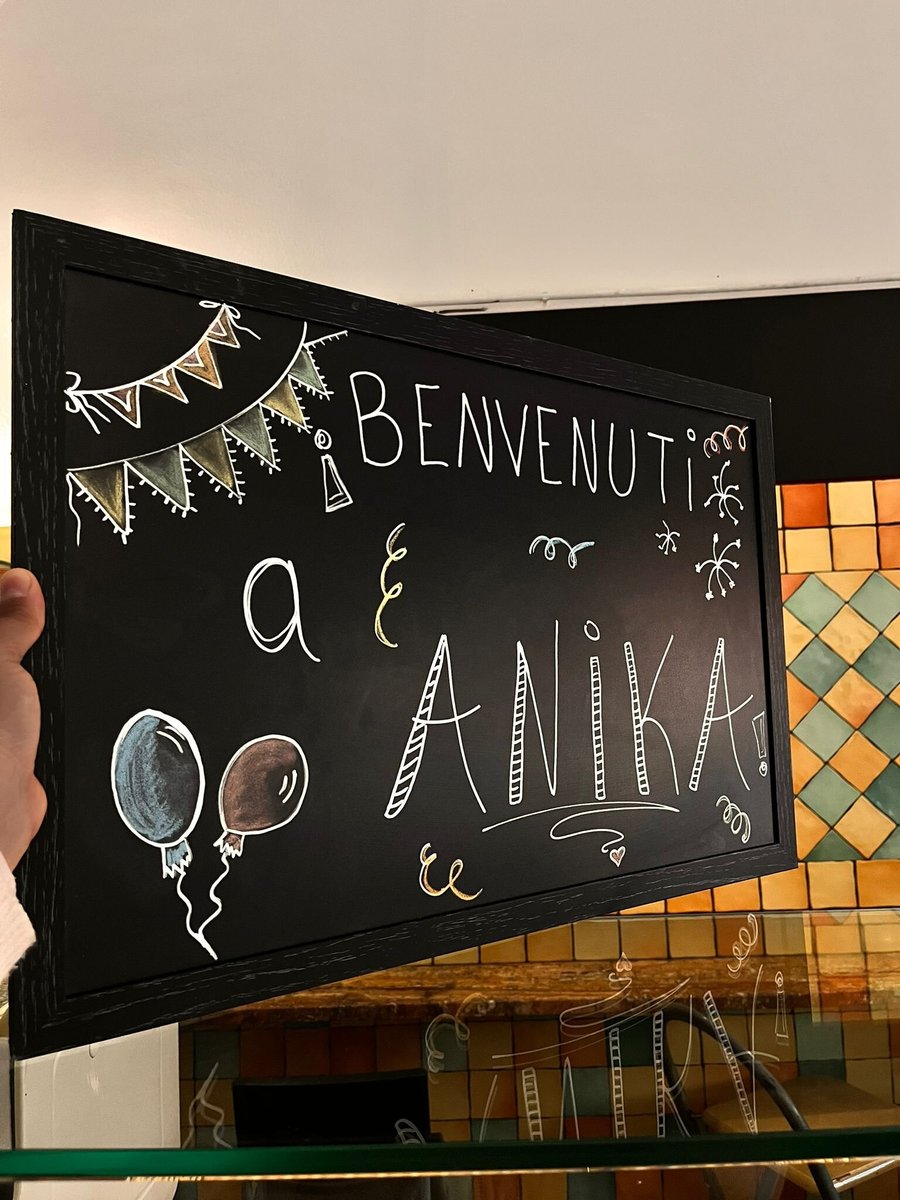 ¡BENVENUTi
a
ANiKA!